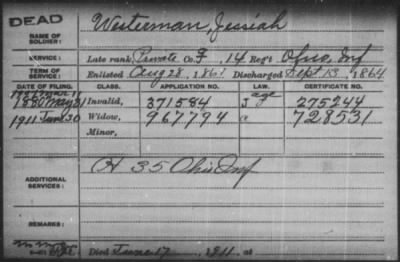 DEAD
NAME OF SOLDIER: Westerman, Jessiah
SERVICE: Late rank, Private Co. F, 14 Reg't Ohio Inf
TERM OF SERVICE: Enlisted Aug 28, 1861 Discharged Sept 13, 1864
DATE OF FILING. CLASS. APPLICATION NO. LAW. CERTIFICATE NO.
1880 May 21 Invalid, 371584 275244
1911 Jun 30 Widow, 967794 728531
Minor,
ADDITIONAL SERVICES: H 35 Ohio Inf
REMARKS:
Died June 17, 1911, at